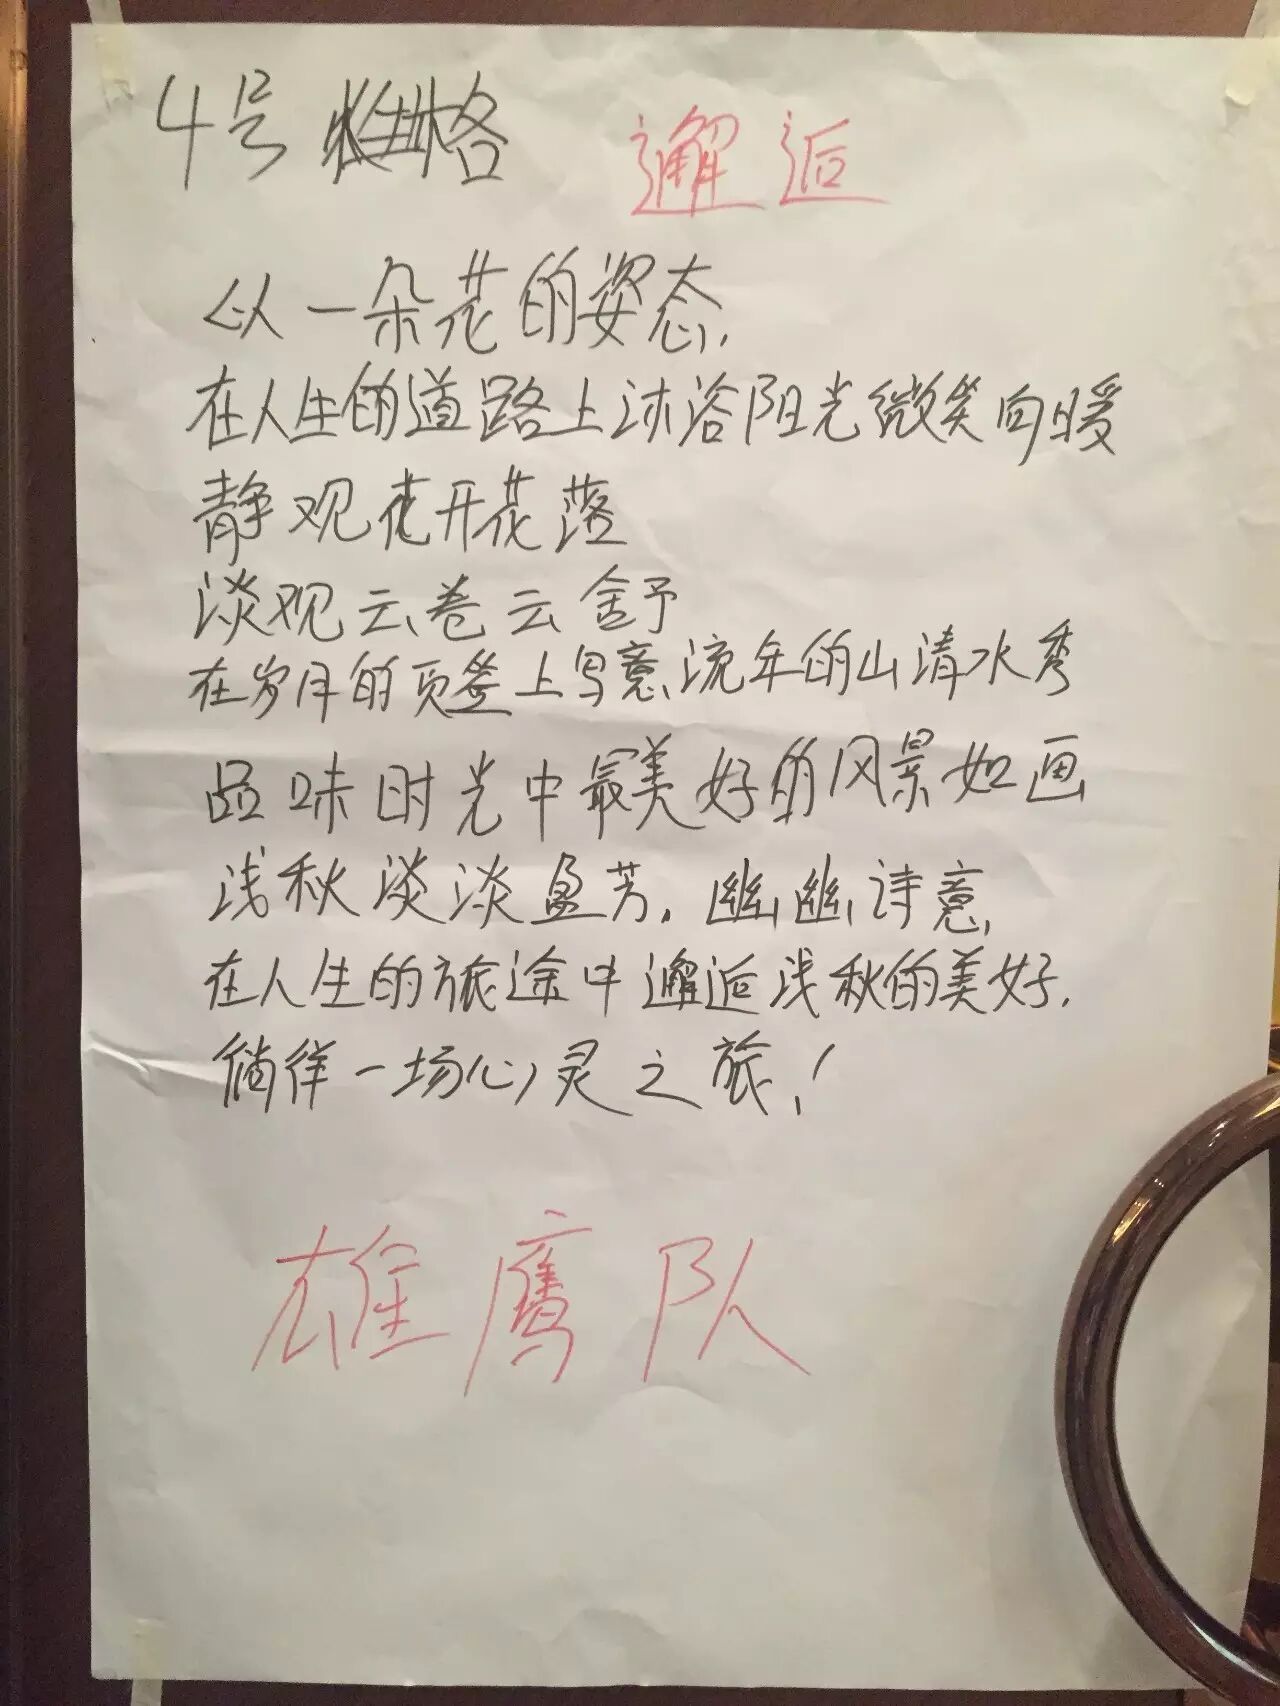 4号 雅格 邂逅
以一朵花的姿态,
在人生的道路上沐浴阳光微笑向暖
静观花开花落
淡观云卷云舒
在岁月的页签上写意流年的山清水秀
品味时光中最美好的风景如画
浅秋淡淡盈芳,幽幽诗意,
在人生的旅途中邂逅浅秋的美好.
徜徉一场心灵之旅!
雄鹰队